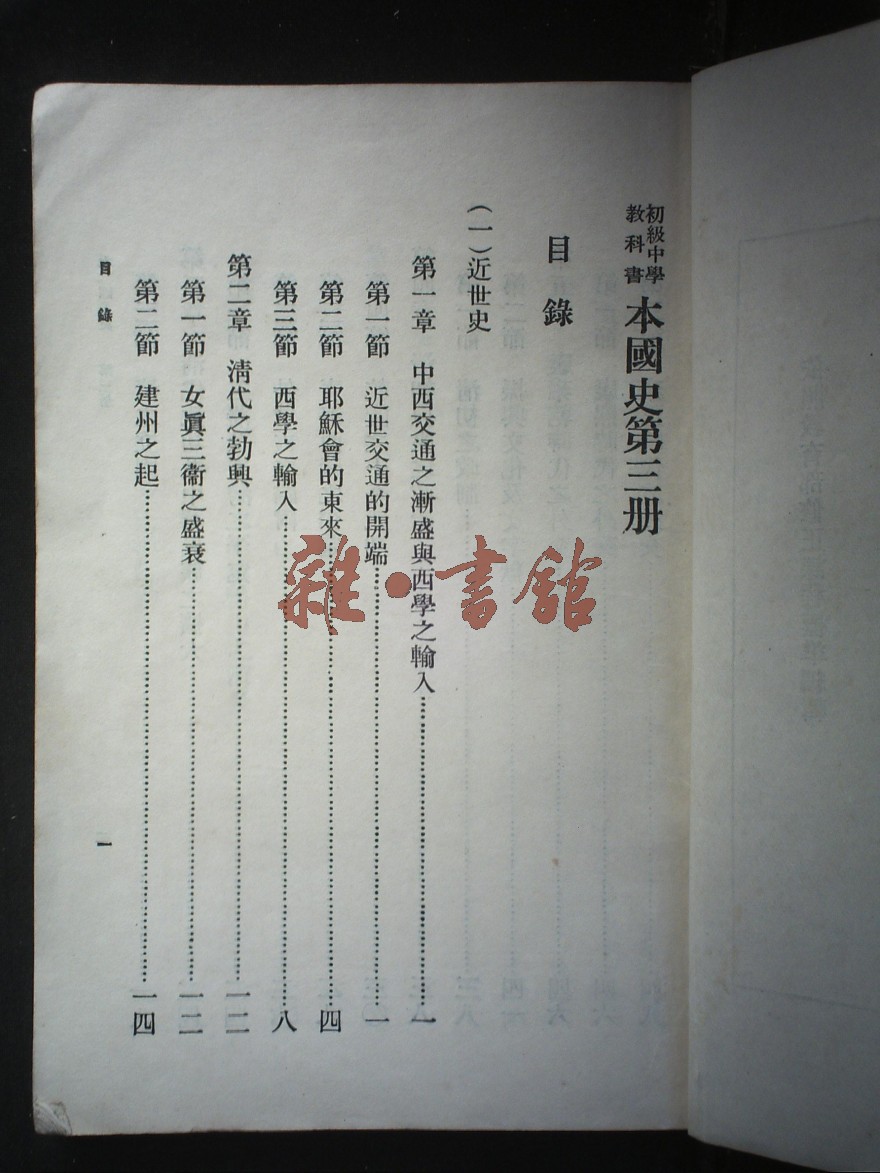 初級中學
教科書
本國史第三册
目錄
(一)近世史
第一章 中西交通之漸盛與西學之輸入……一
第一節 近世交通的開端……一
第二節 耶穌會的東來……四
第三節 西學之輸入……八
第二章 淸代之勃興……一二
第一節 女眞三衞之盛衰……一二
第二節 建州之起……一四
目錄
一
雜·書館